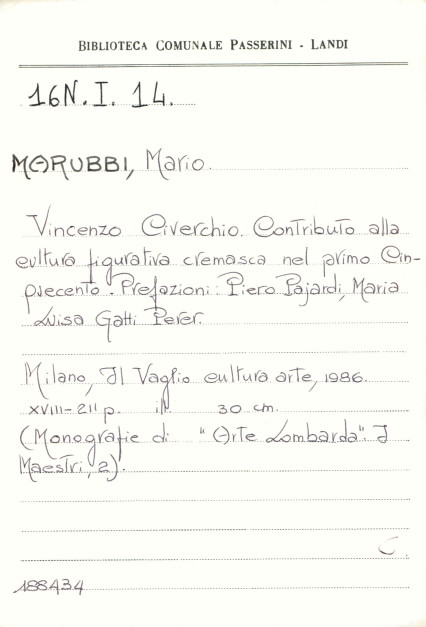 BIBLIOTECA COMUNALE PASSERINI - LANDI
16N.I.14.
MARUBBI, Mario.
Vincenzo Civerchio. Contributo alla
cultura figurativa cremasca nel primo Cin-
quecento. Prefazioni: Piero Pajardi, Maria
Luisa Gatti Perer.
Milano, Il Vaglio cultura arte, 1986.
XVIII-211 p. ill. 30 cm.
(Monografie di "Arte Lombarda". I
Maestri, 2).
C.
188434